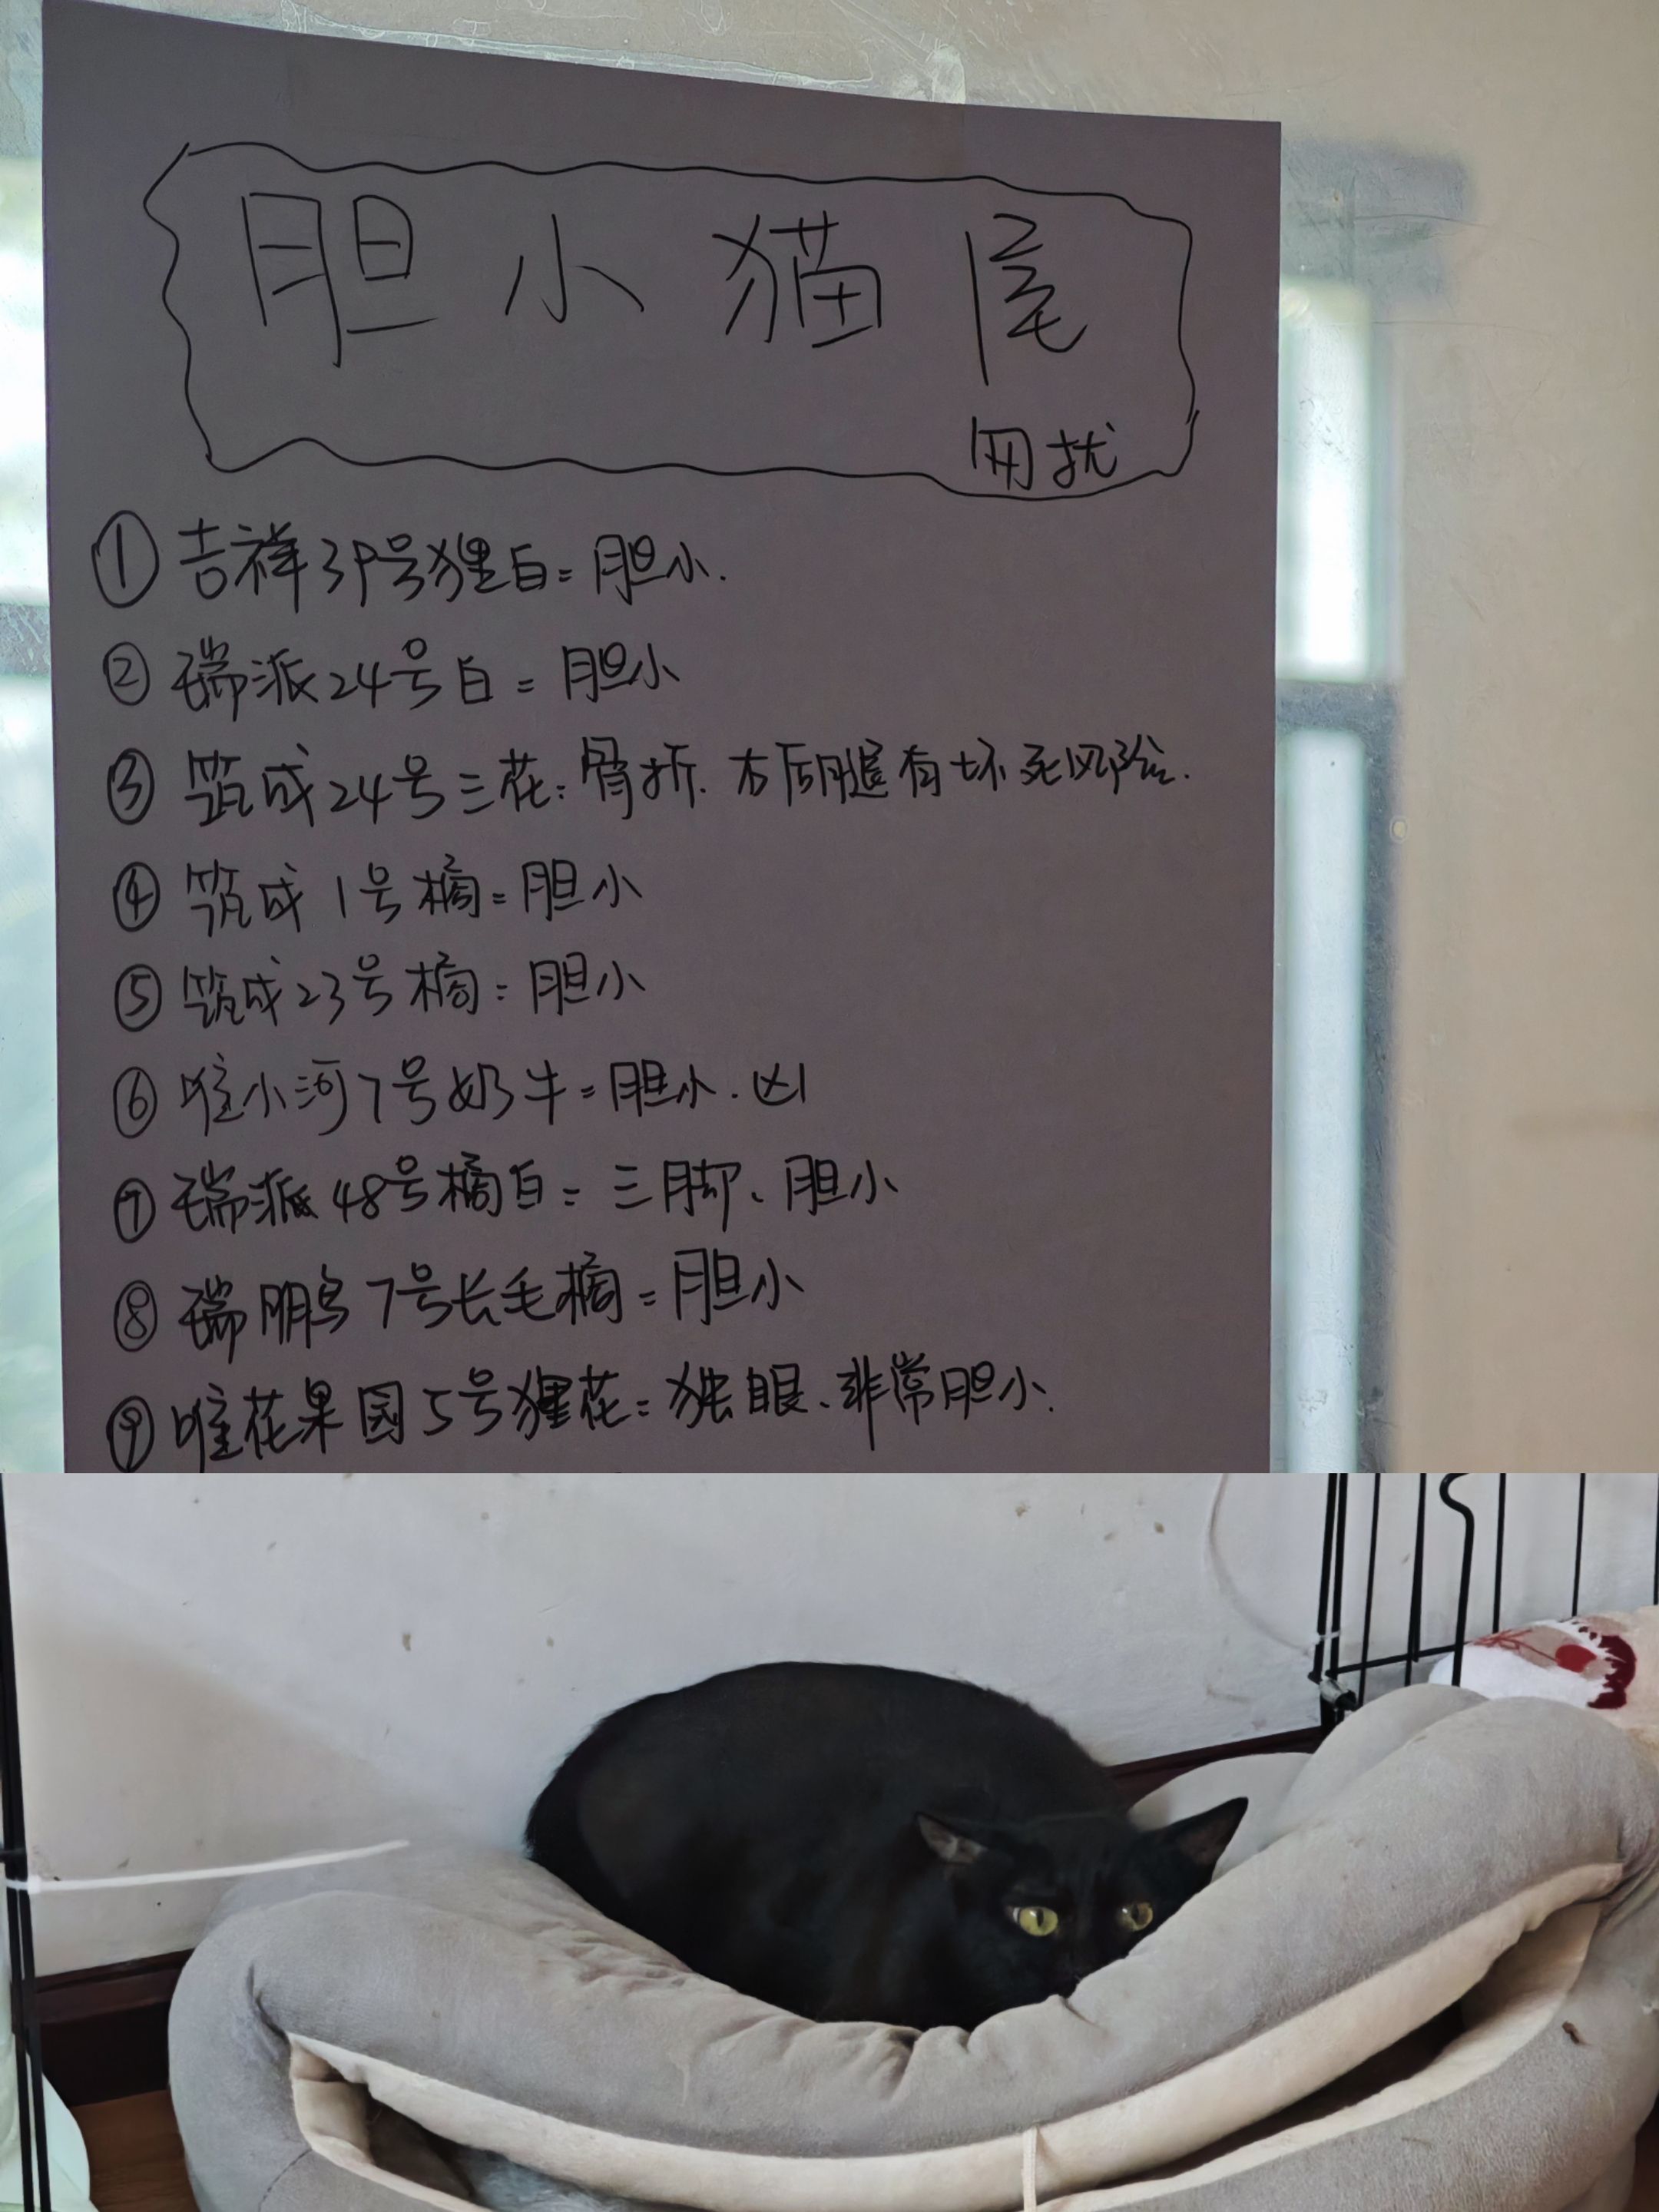 胆小猫尾
扰
① 吉祥39号狸白：胆小.
② 瑞派24号白：胆小
③ 筑成24号三花：骨折.右后腿有坏死风险.
④ 筑成1号橘：胆小
⑤ 筑成23号橘：胆小
⑥ 唯小河7号奶牛：胆小.凶
⑦ 瑞派48号橘白：三脚、胆小
⑧ 瑞鹏7号长毛橘：胆小
⑨ 唯花果园5号狸花：独眼、非常胆小.